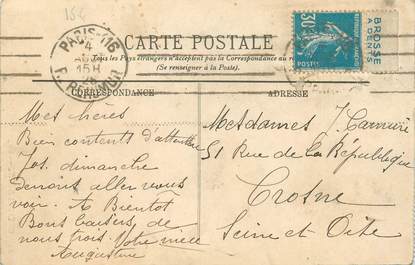 154
PARIS-116
4
15H
CARTE POSTALE
Tous les Pays étrangers n'acceptent pas la Correspondance au recto
(Se renseigner à la Poste)
30
POSTES
REPUBLIQUE FRANÇAISE
BROSSE
A DENTS
CORRESPONDANCE
ADRESSE
Mes chères
Bien contents d'attendre
Jos. dimanche
devons aller vous
voir. A Bientôt
Bons baisers, de
nous trois Votre nièce
Augustine
Mesdames
51 Rue de la République
Crosne
Seine et Oise